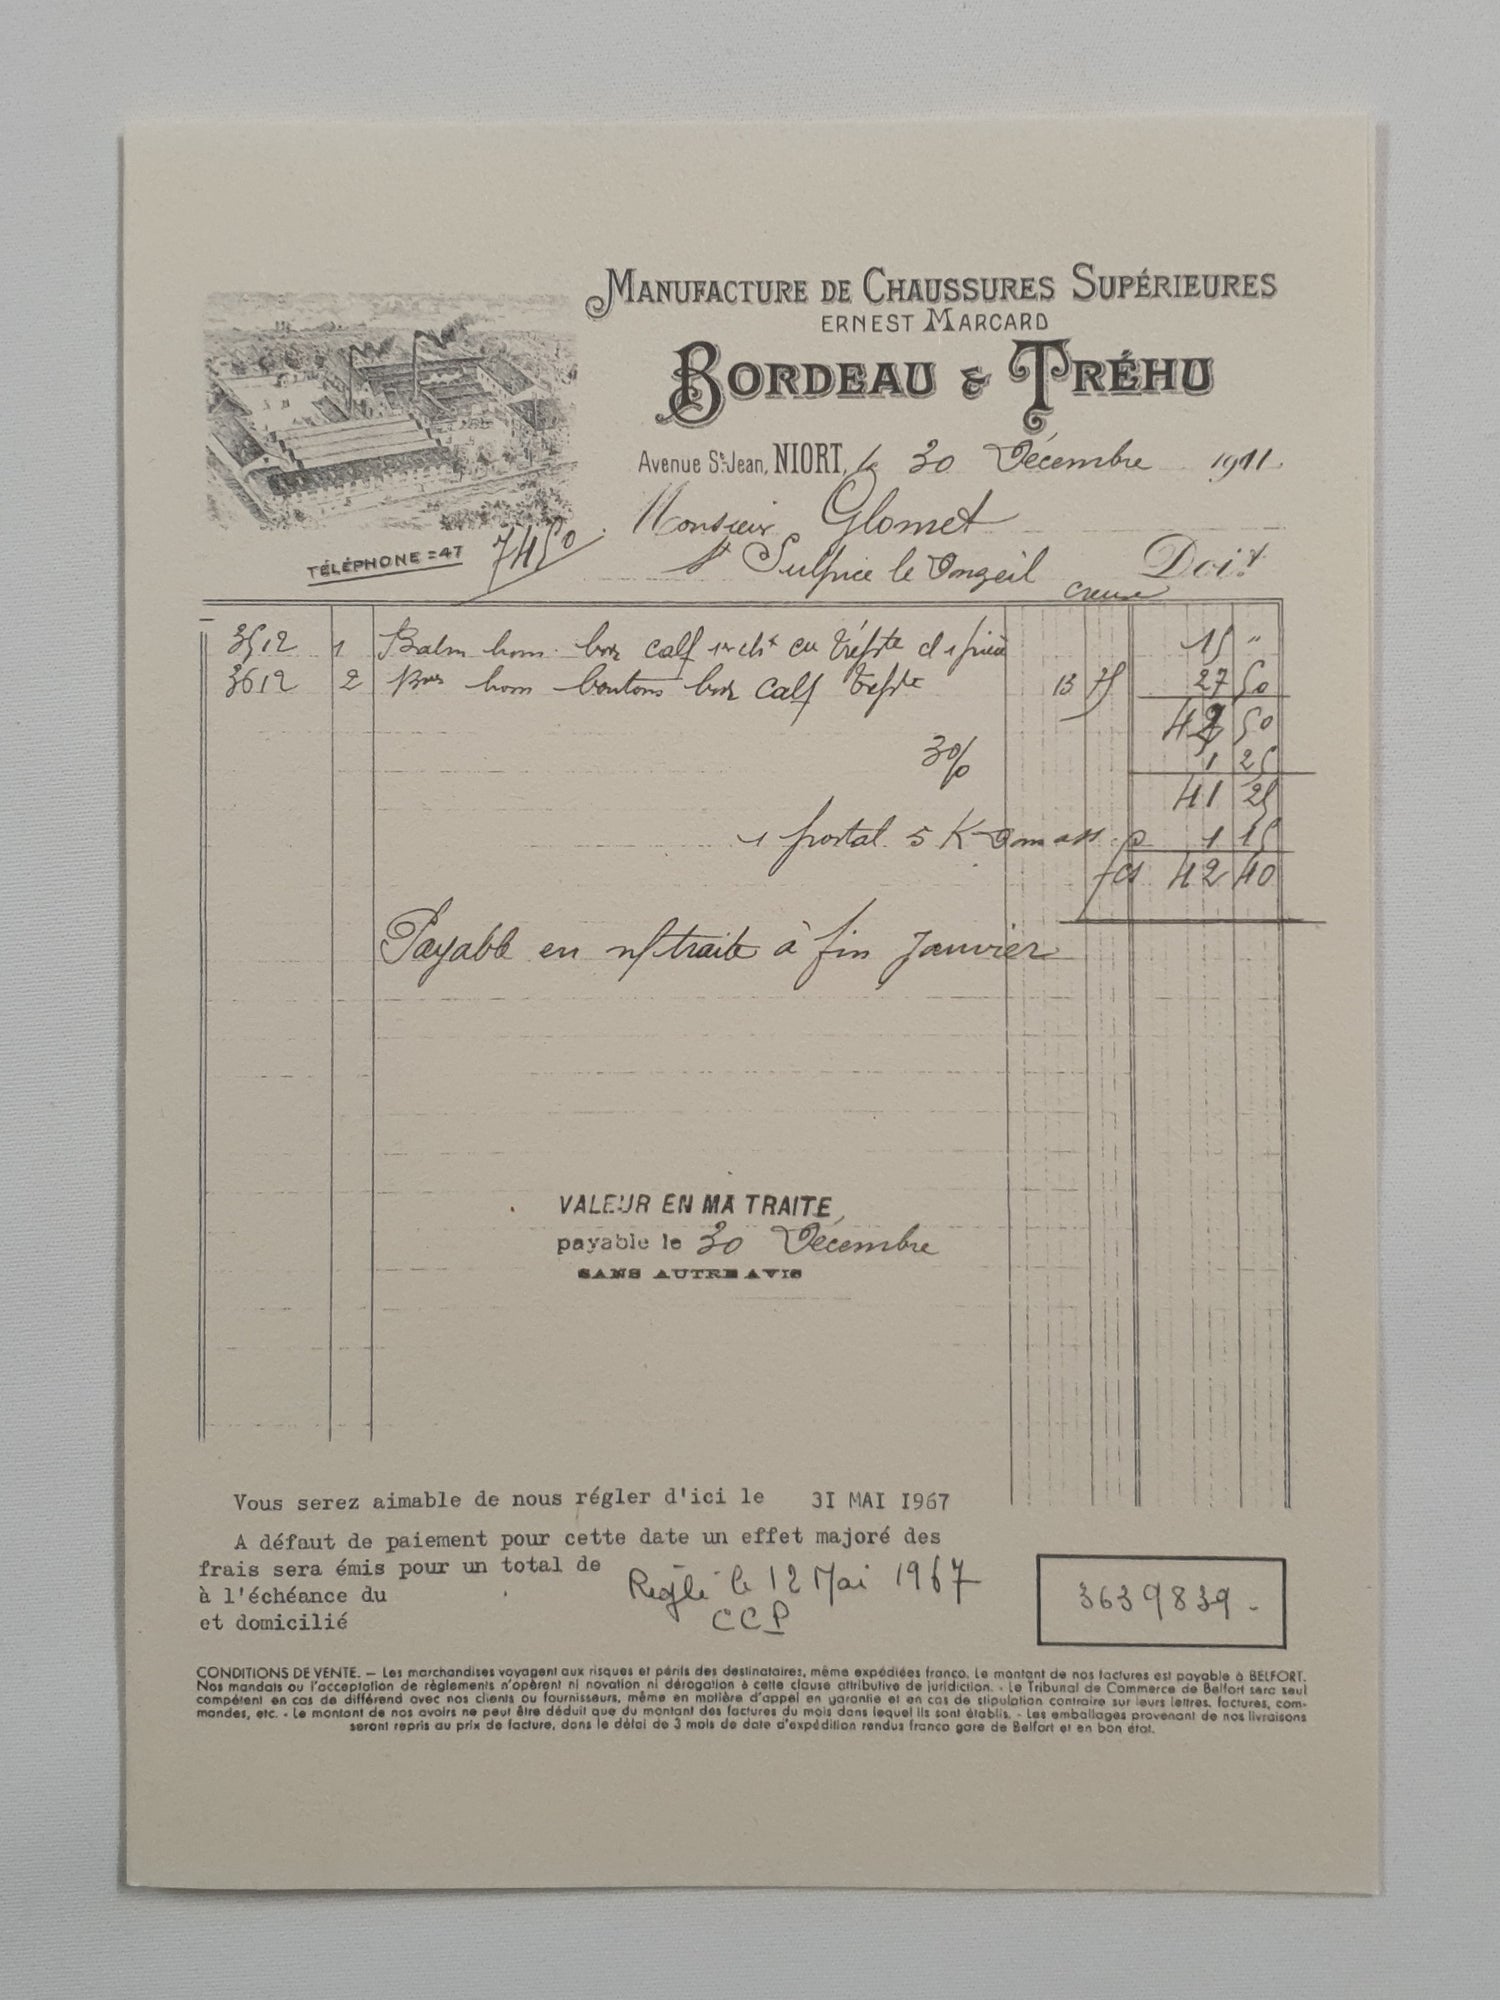 MANUFACTURE DE CHAUSSURES SUPÉRIEURES
ERNEST MARCARD
BORDEAU & TRÉHU
Avenue St. Jean, NIORT, le 30 Décembre 1911
Monsieur Glomet
TÉLÉPHONE = 47 7450
St Sulpice le Creuse Doit
3512 1 Balm hom. box calf 15 "
3612 2 hom boutons box calf 13 75 27 50
42 50
3% 1 25
41 25
1 postal 5 K 1 15
fcs 42 40
Payable en n/traite à fin Janvier
VALEUR EN MA TRAITE
payable le 30 Décembre
SANS AUTRE AVIS
Vous serez aimable de nous régler d'ici le 3I MAI I967
A défaut de paiement pour cette date un effet majoré des
frais sera émis pour un total de
à l'échéance du
et domicilié
Réglé le 12 Mai 1967
CCP
3639839.-
CONDITIONS DE VENTE. — Les marchandises voyagent aux risques et périls des destinataires, même expédiées franco. Le montant de nos factures est payable à BELFORT.
Nos mandats ou l'acceptation de règlements n'opèrent ni novation ni dérogation à cette clause attributive de juridiction. - Le Tribunal de Commerce de Belfort sera seul
compétent en cas de différend avec nos clients ou fournisseurs, même en matière d'appel en garantie et en cas de stipulation contraire sur leurs lettres, factures, com-
mandes, etc. - Le montant de nos avoirs ne peut être déduit que du montant des factures du mois dans lequel ils sont établis. - Les emballages provenant de nos livraisons
seront repris au prix de facture, dans le délai de 3 mois de date d'expédition rendus franco gare de Belfort et en bon état.